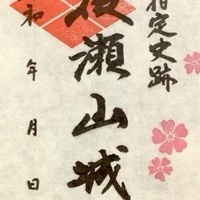 指定史跡
後瀬山城
令和 年 月 日